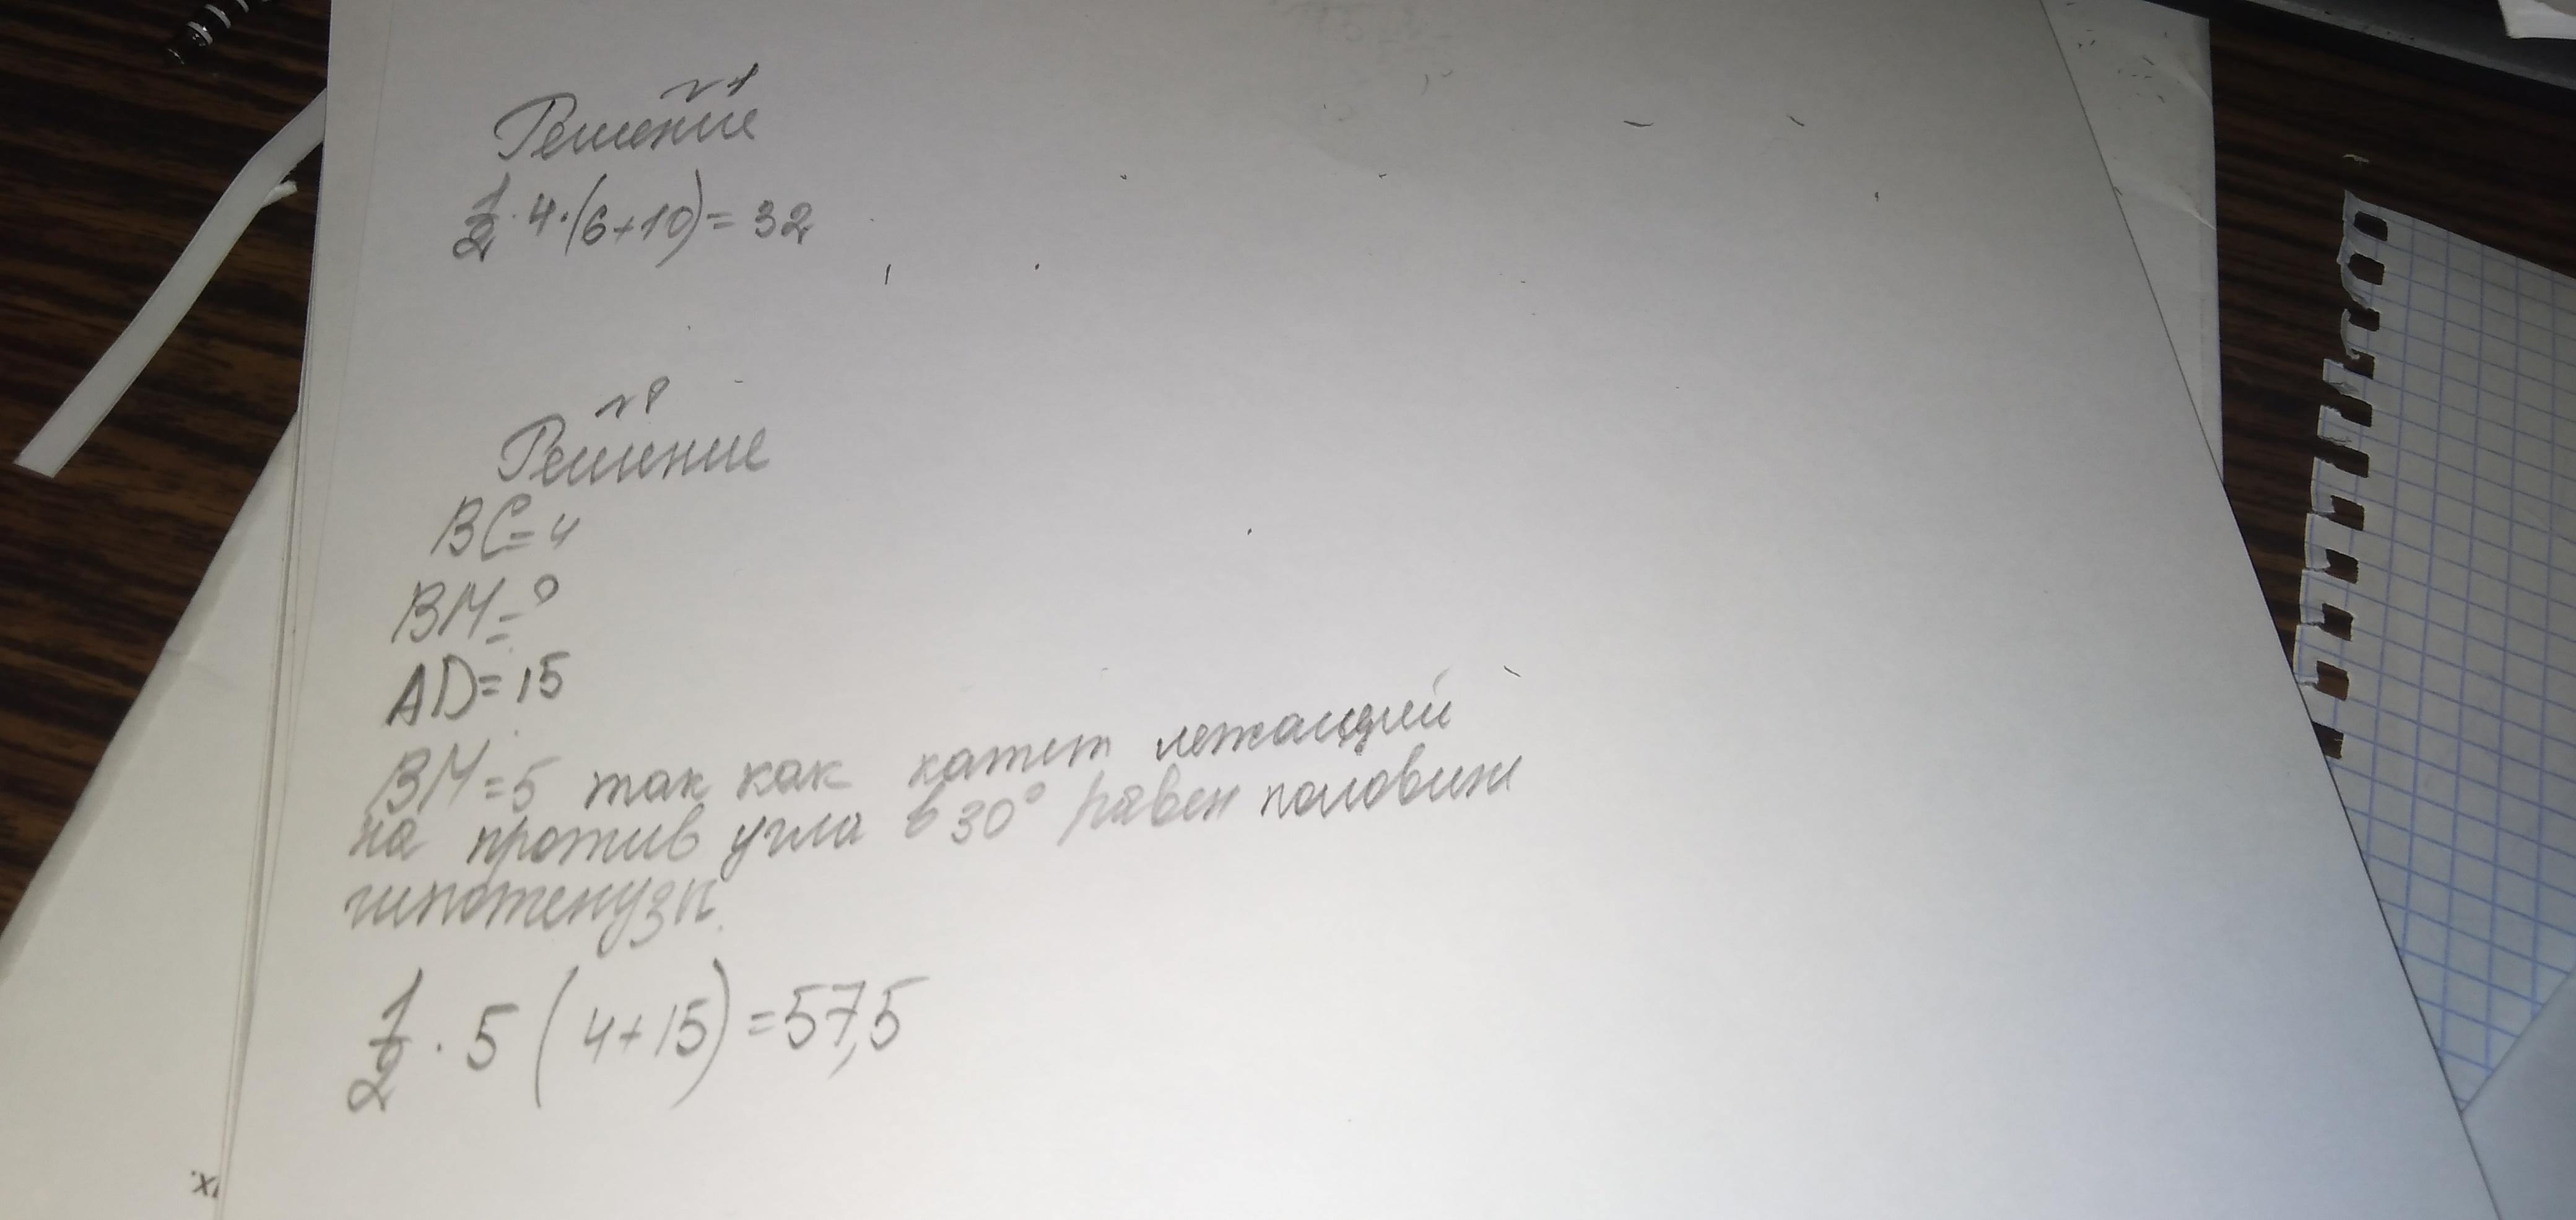 №1
Решение
1/2 · 4 · (6+10) = 32
№8
Решение
BC=4
BM=?
AD=15
BM=5 так как катет лежащей
на против угла в 30° равен половине
гипотенузы.
1/2 · 5 (4+15) =57,5
х.